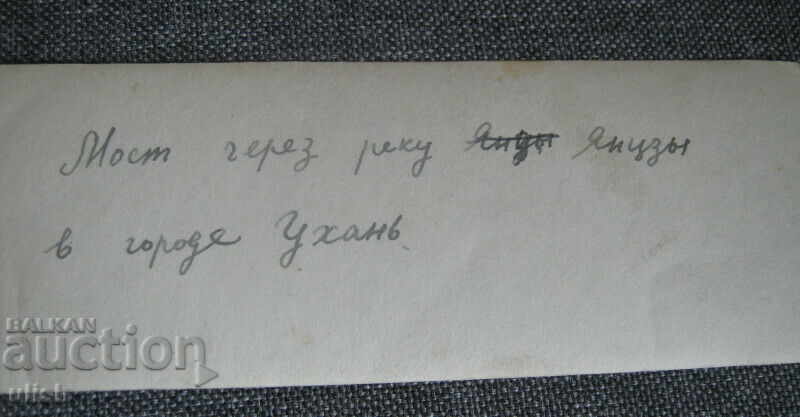 Мост через реку Янды Янцзы
в городе Ухань
BALKAN
auction
ulieb